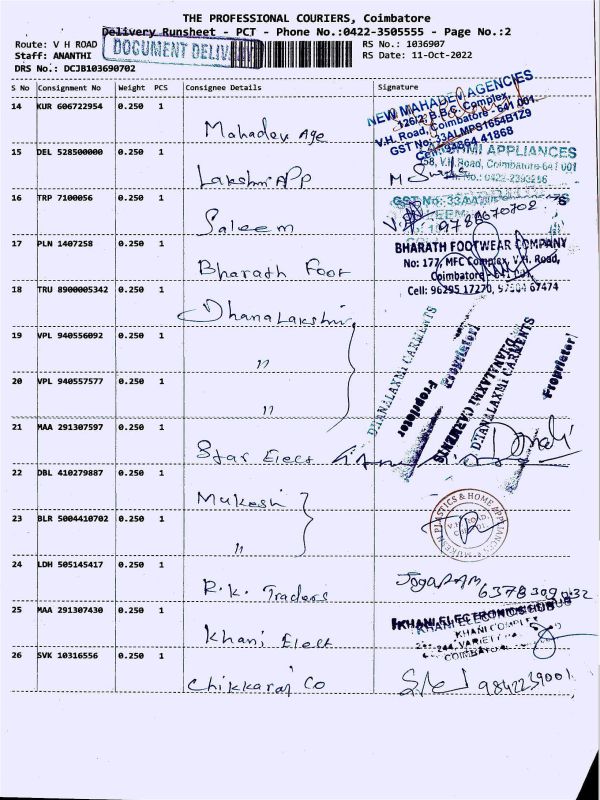 THE PROFESSIONAL COURIERS, Coimbatore
Delivery Runsheet - PCT - Phone No.:0422-3505555 - Page No.:2
Route: V H ROAD
RS No.: 1036907
Staff: ANANTHI
RS Date: 11-Oct-2022
DRS No.: DCJB103690702
DOCUMENT DELIV
S No Consignment No Weight PCS Consignee Details Signature
14 KUR 606722954 0.250 1
Mahadev Age
NEW MAHADEV AGENCIES
126/2 B.B.C. Complex,
V.H. Road, Coimbatore - 641 001
GST No: 33ALMPS1654B1Z9
15 DEL 528500000 0.250 1
Lakshmi APP
APPLIANCES
V.H.Road, Coimbatore-641 001
M
16 TRP 7100056 0.250 1
Saleem
17 PLN 1407258 0.250 1
Bharath Foot
BHARATH FOOTWEAR COMPANY
No: 177, MFC Complex, V.H. Road,
Coimbatore - 641 001.
Cell: 96295 17270, 97504 67474
18 TRU 8900005342 0.250 1
Dhanalakshmi
19 VPL 940556092 0.250 1
"
20 VPL 940557577 0.250 1
"
DHANALAXMI GARMENTS
Proprietor
Proprietor
DHANALAXMI GARMENTS
DHANALAXMI GARMENTS
Proprietor
21 MAA 291307597 0.250 1
Star Elect
22 DBL 410279887 0.250 1
Mukesh
23 BLR 5004410702 0.250 1
"
MUKESH PLASTICS & HOME APPLIANCES
V.H. ROAD,
24 LDH 505145417 0.250 1
R.K. Traders
25 MAA 291307430 0.250 1
Khani Elect
KHANI ELECTRONICS HUB
KHANI COMPLEX
26 SVK 10316556 0.250 1
Chikkaraj Co
9842239001